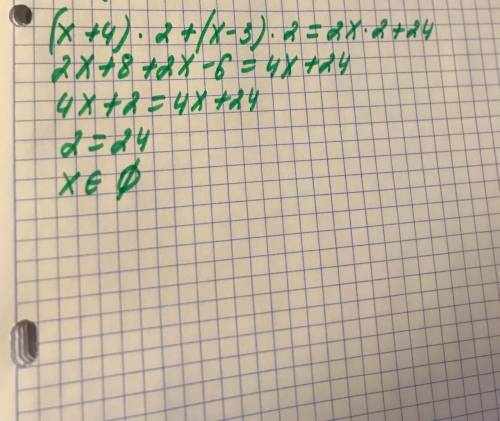 (x+4)·2+(x-3)·2=2x·2+24
2x+8+2x-6=4x+24
4x+2=4x+24
2=24
x∈∅